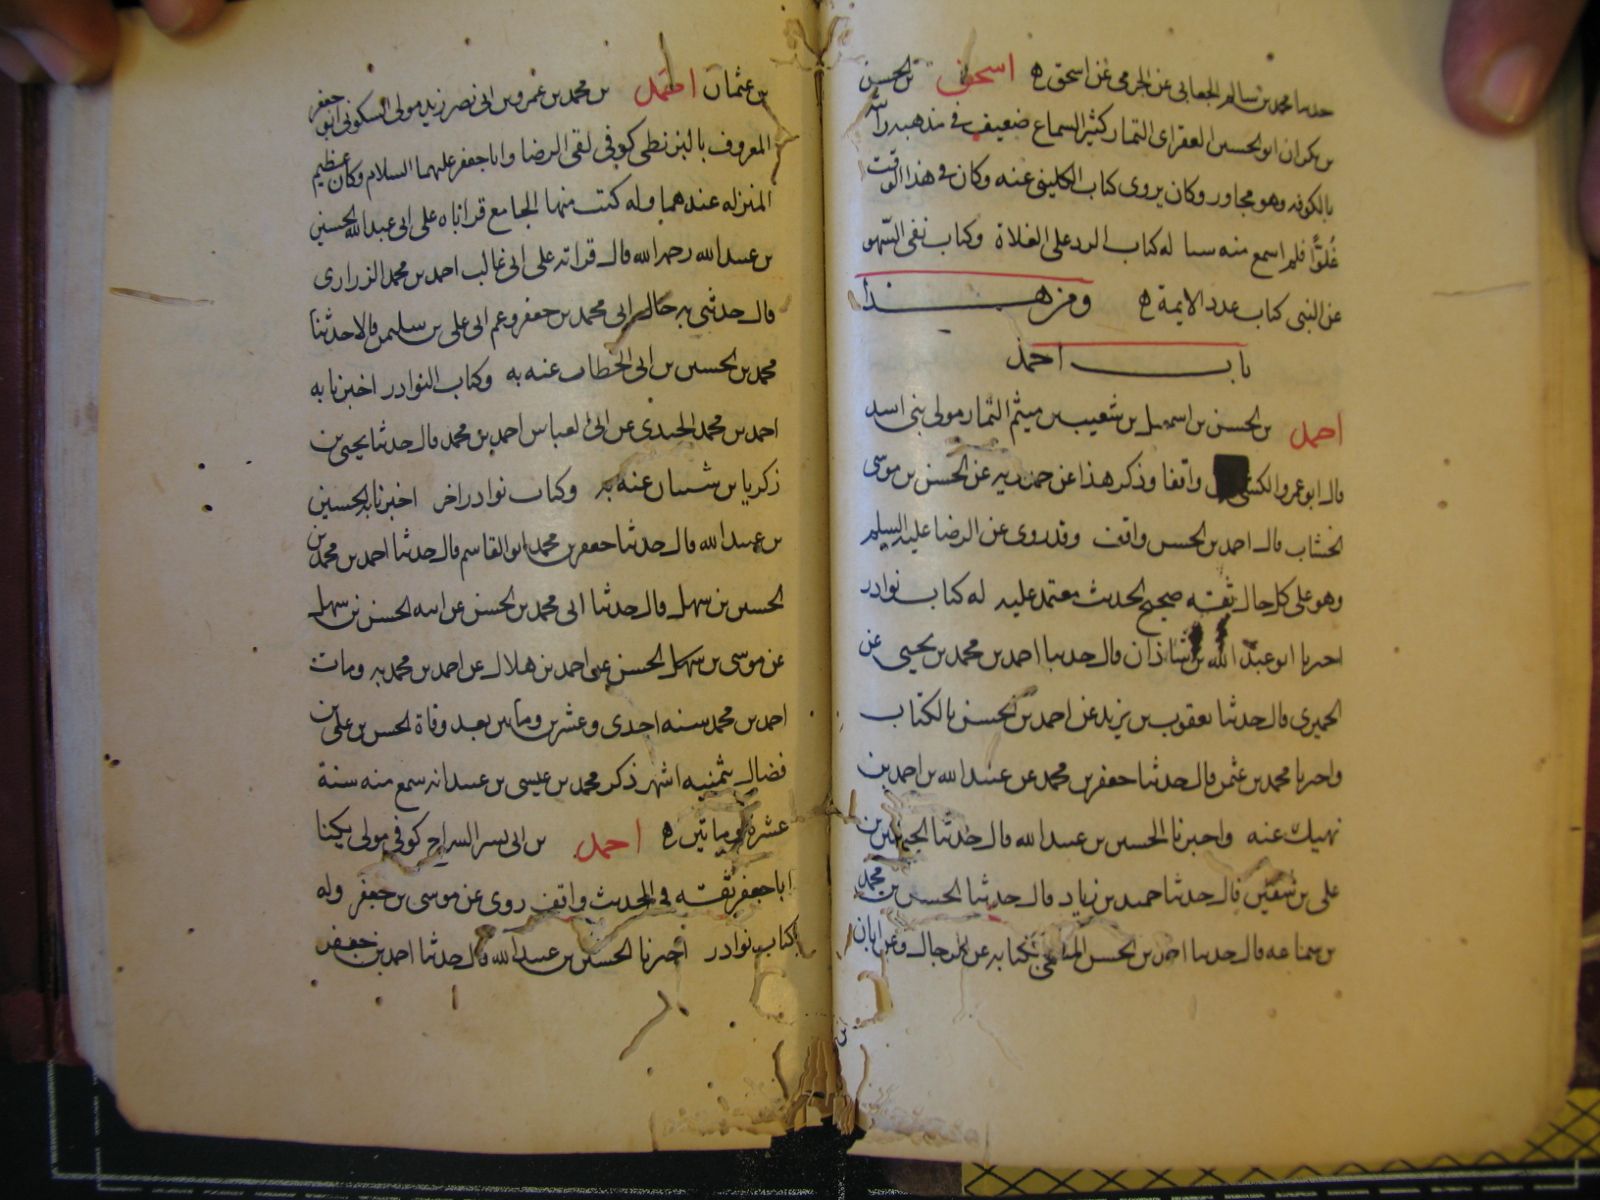 حدثنا محمد بن سالم الجعابي عن الجرمي عن اسحق ه اسحق بن الحسن
بن بكران ابو الحسين العقراى التمار كثير السماع ضعيف في مذهبه رايته
بالكوفه وهو مجاور وكان يروى كتاب الكليني عنه وكان في هذا الوقت
غُلوًّا فلم اسمع منه سيا له كتاب الرد على الغلاة وكتاب نفى السّهو
عن النبى كتاب عدد الايمة ه ومن هذا
باب احمد
احمد بن الحسن بن اسمعيل بن شعيب بن ميثم التمار مولى بنى اسد
قال ابو عمرو الكشى واقفا وذكر هذا عن حمدويه عن الحسن بن موسى
الخشاب قال احمد بن الحسن واقف وقد روى عن الرضا عليه السلم
وهو على كل حال ثقه صحيح الحديث معتمد عليه له كتاب نوادر
اخبرنا ابو عبد الله بن شاذان قال حدثنا احمد بن محمد بن يحيى عن
الحميرى قال حدثنا يعقوب بن يزيد عن احمد بن الحسن بالكتاب
واخبرنا محمد بن عثمن قال حدثنا جعفر بن محمد عن عبيد الله بن احمد بن
نهيك عنه واخبرنا الحسين بن عبيد الله قال حدثنا الحسين بن
على بن سفين قال حدثنا حميد بن زياد قال حدثنا الحسن بن محمد
بن سماعه قال حدثنا احمد بن الحسن الميثمى بكتابه عن الرجال وعن ابان
بن عثمان احمد بن محمد بن عمرو بن ابى نصر زيد مولى السكونى ابو جعفر
المعروف بالبزنطى كوفى لقى الرضا وابا جعفر عليهما السلام وكان عظيم
المنزله عندهما وله كتب منها الجامع قراناه على ابى عبد الله الحسين
بن عبيد الله رحمه الله قال قراته على ابى غالب احمد بن محمد الزرارى
قال حدثنى به خال ابى محمد بن جعفر وعم ابى على بن سليمن قالا حدثنا
محمد بن الحسين بن ابى الخطاب عنه به وكتاب النوادر اخبرنا به
احمد بن محمد الجندى عن ابى العباس احمد بن محمد قال حدثنا يحيى بن
زكريا بن شيبان عنه به وكتاب نوادر اخر اخبرنا به الحسين
بن عبيد الله قال حدثنا جعفر بن محمد ابو القاسم قال حدثنا احمد بن محمد بن
الحسن بن سهل قال حدثنا ابى محمد بن الحسن عن ابيه الحسن بن سهل
عن موسى بن الحسن عن احمد بن هلال عن احمد بن محمد به ومات
احمد بن محمد سنه احدى وعشرين وماتين بعد وفاة الحسن بن على بن
فضال بثمنيه اشهر ذكر محمد بن عيسى بن عبيد انه سمع منه سنة
عشرة وماتين ه احمد بن ابى بشر السراج كوفى مولى يكنا
ابا جعفر ثقه في الحديث واقف روى عن موسى بن جعفر وله
كتاب نوادر اخبرنا الحسين بن عبيد الله قال حدثنا احمد بن جعفر